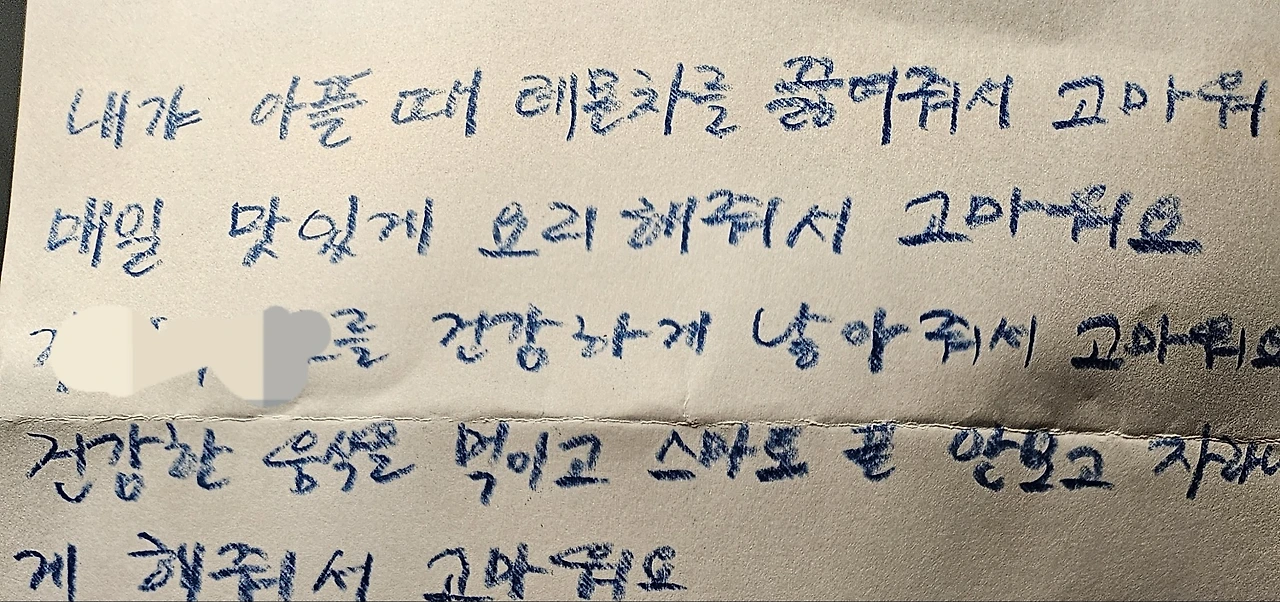 내가 아플 때 레몬차를 끓여줘서 고마워
매일 맛있게 요리해줘서 고마워요
를 건강하게 낳아줘서 고마워요
건강한 음식을 먹이고 스마트 폰 안보고 자라
게 해줘서 고마워요